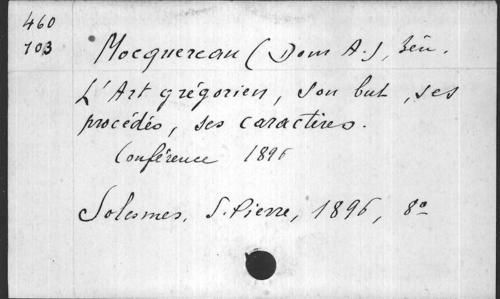 460
703
Mocquereau (Dom A.), bén.
L'Art grégorien, son but, ses
procédés, ses caractères.
Conférence 1896
Solesmes, S. Pierre, 1896, 8º